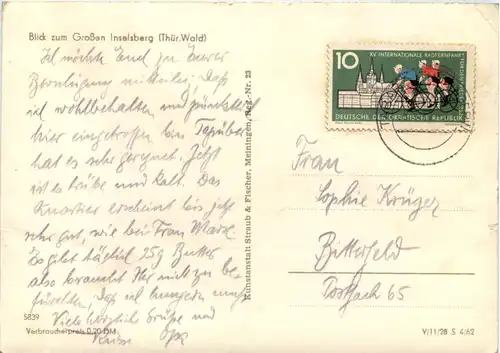 Blick zum Großen Inselsberg (Thür. Wald)
Ich möchte Euch zu Eurer
Beruhigung mitteilen, daß
ich wohlbehalten und pünktlich
hier eingetroffen bin. Tagsüber
hat es sehr geregnet. Jetzt
ist es trübe und kalt. Das
Quartier erscheint bis jetzt
sehr gut, wie bei Frau
Es gibt täglich 25g Butter
also braucht Ihr nicht zu be-
fürchten, daß ich hungern muß
Viele herzliche Grüße und
5839
Verbraucherpreis 0,20 DM
Kunstanstalt Straub & Fischer, Meiningen, Reg.-Nr. 23
10
XV. INTERNATIONALE RADFERNFAHRT
DEUTSCHE DEMOKRATISCHE REPUBLIK
Frau
Sophie Krüger
Bitterfeld
Postfach 65
V/11/28 S 4/62